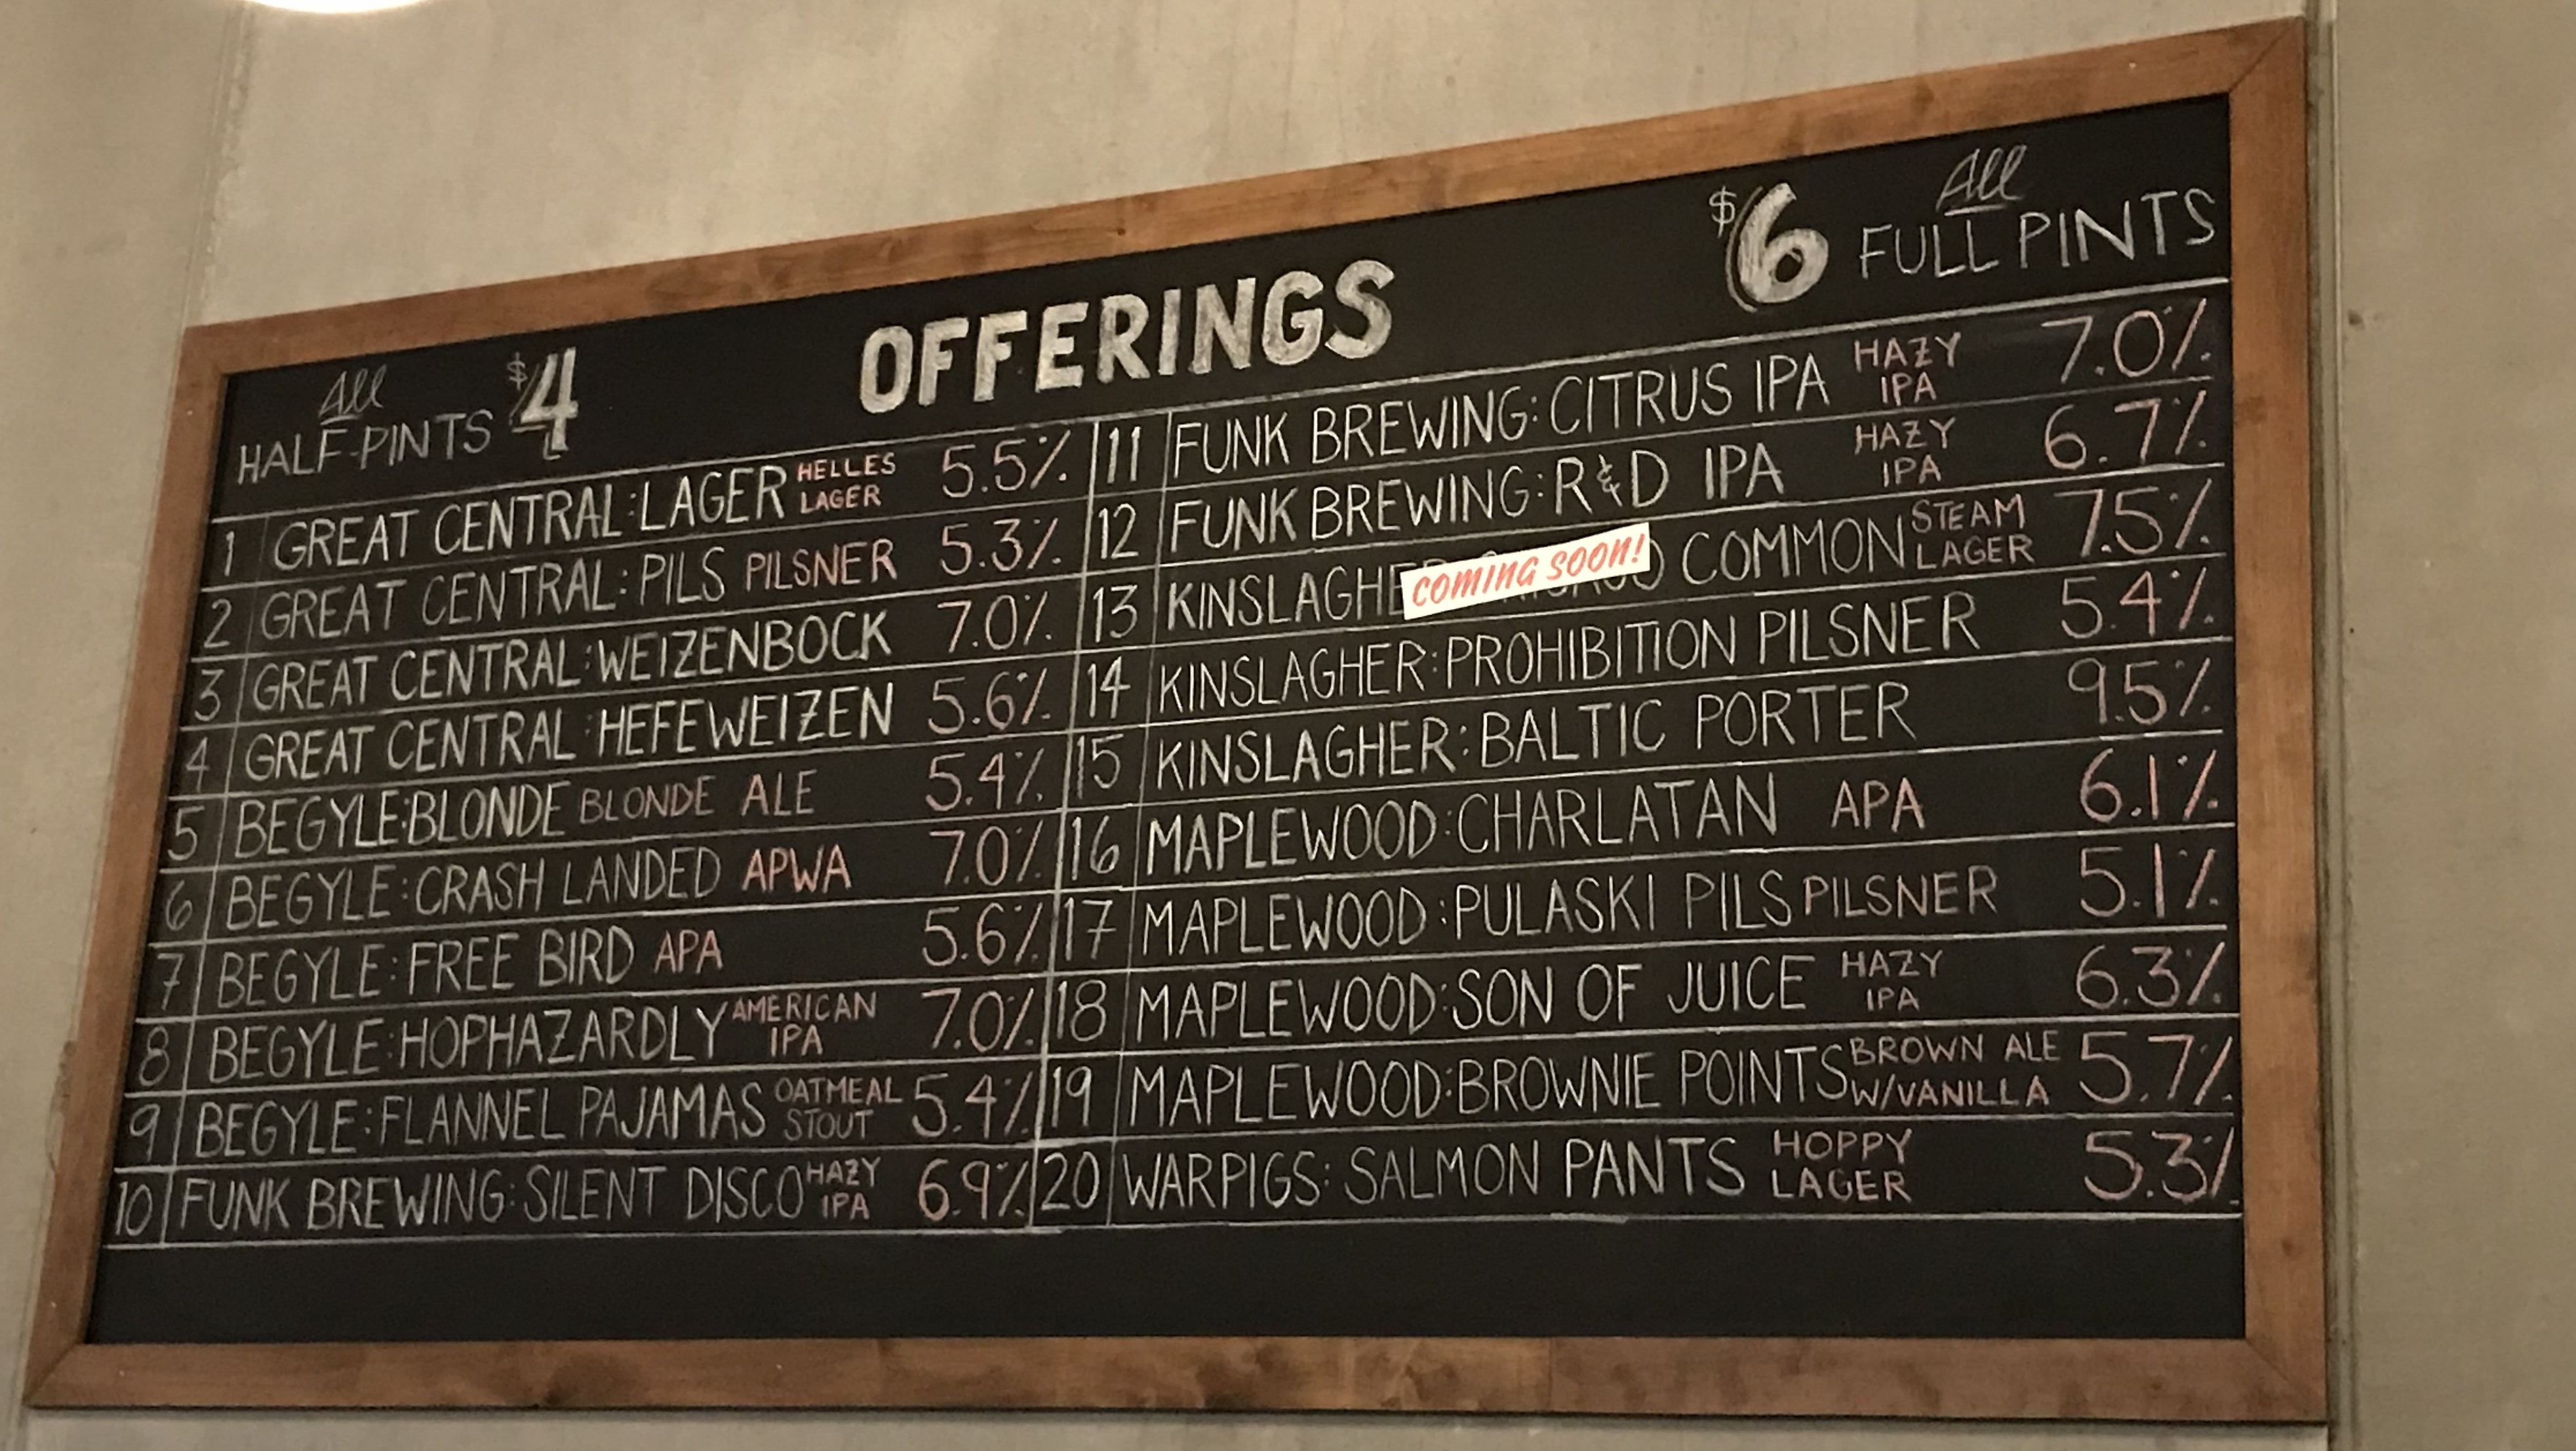 OFFERINGS
All
HALF-PINTS $4
$6 All
FULL PINTS
1 GREAT CENTRAL:LAGER HELLES LAGER 5.5%
2 GREAT CENTRAL:PILS PILSNER 5.3%
3 GREAT CENTRAL:WEIZENBOCK 7.0%
4 GREAT CENTRAL:HEFEWEIZEN 5.6%
5 BEGYLE:BLONDE BLONDE ALE 5.4%
6 BEGYLE:CRASH LANDED APWA 7.0%
7 BEGYLE:FREE BIRD APA 5.6%
8 BEGYLE:HOPHAZARDLY AMERICAN IPA 7.0%
9 BEGYLE:FLANNEL PAJAMAS OATMEAL STOUT 5.4%
10 FUNK BREWING:SILENT DISCO HAZY IPA 6.9%
11 FUNK BREWING:CITRUS IPA HAZY IPA 7.0%
12 FUNK BREWING:R&D IPA HAZY IPA 6.7%
13 KINSLAGHE coming soon! COMMON STEAM LAGER 7.5%
14 KINSLAGHER:PROHIBITION PILSNER 5.4%
15 KINSLAGHER:BALTIC PORTER 9.5%
16 MAPLEWOOD:CHARLATAN APA 6.1%
17 MAPLEWOOD:PULASKI PILS PILSNER 5.1%
18 MAPLEWOOD:SON OF JUICE HAZY IPA 6.3%
19 MAPLEWOOD:BROWNIE POINTS BROWN ALE W/VANILLA 5.7%
20 WARPIGS: SALMON PANTS HOPPY LAGER 5.3%